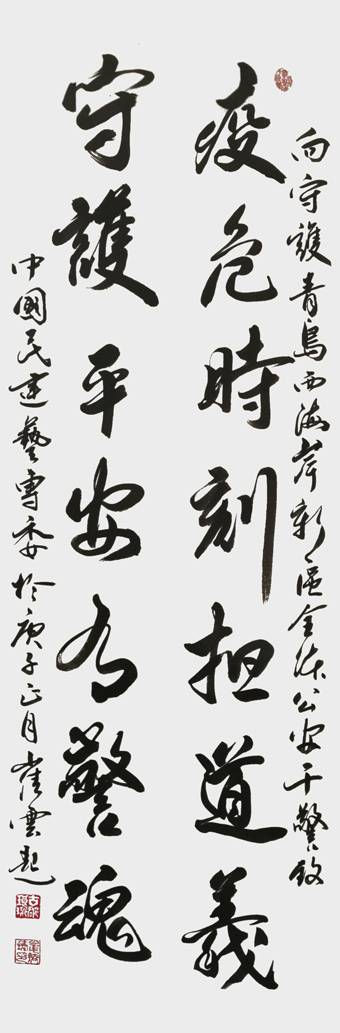 向守護青島西海岸新區全体公安干警致
疫危時刻担道義
守護平安有警魂
中國民建藝專委於庚子正月崔雲起